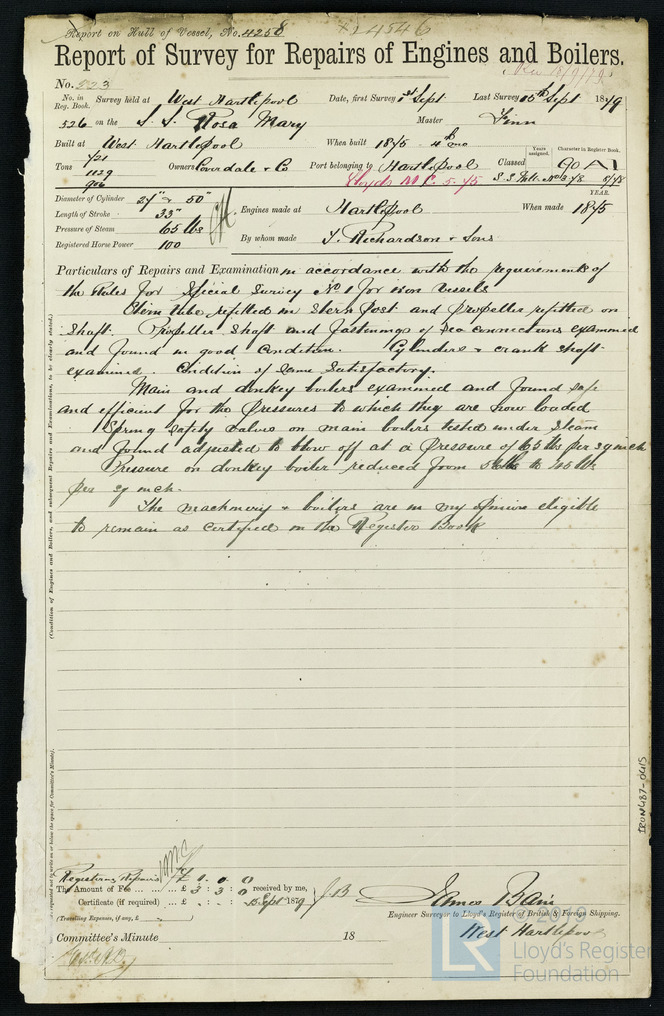 Report on Hull of Vessel, No. 4258
Report of Survey for Repairs of Engines and Boilers.
No. 223
No. in Reg. Book. Survey held at West Hartlepool Date, first Survey 1st Sept Last Survey 15th Sept 1879
326 on the S. S. Rosa Mary Master
Built at West Hartlepool When built 1875 4 mo Years assigned. Character in Register Book.
Tons 721 1129 906 Owners Coverdale & Co Port belonging to Hartlepool Classed 90 A1
Lloyds M C. 5. 75 S. S. 5/78
YEAR.
Diameter of Cylinder 27" & 50"
Length of Stroke 33" Engines made at Hartlepool When made 1875
Pressure of Steam 65 lbs
Registered Horse Power 100 By whom made T. Richardson & Sons
Particulars of Repairs and Examination in accordance with the requirements of
the Rules for Special Survey No 1 for iron Vessels
Stern tube refitted in Stern Post and Propeller refitted on
Shaft. Propeller Shaft and fastenings of Sea connections examined
and found in good Condition. Cylinders & crank shaft
examined. Condition of same Satisfactory.
Main and donkey boilers examined and found safe
and efficient for the pressures to which they are now loaded
Spring safety valves on main boilers tested under steam
and found adjusted to blow off at a pressure of 65 lbs per sq inch
Pressure on donkey boiler reduced from to 45 lbs
per sq inch.
The machinery & boilers are in my opinion eligible
to remain as certified on the Register Book
(Condition of Engines and Boilers, and subsequent Repairs and Examinations, to be clearly stated.)
IRON487-0415
Registering Repairs £ 0 . 0 . 0
The Amount of Fee ... ... £ 3 : 3 : 0 received by me, JB
Certificate (if required) ... £ 15 Sept 1879 James Bain
(Travelling Expenses, if any, £ ) Engineer Surveyor to Lloyd's Register of British & Foreign Shipping.
West Hartlepool
Committee's Minute 18
© 2019
LR Lloyd's Register
Foundation